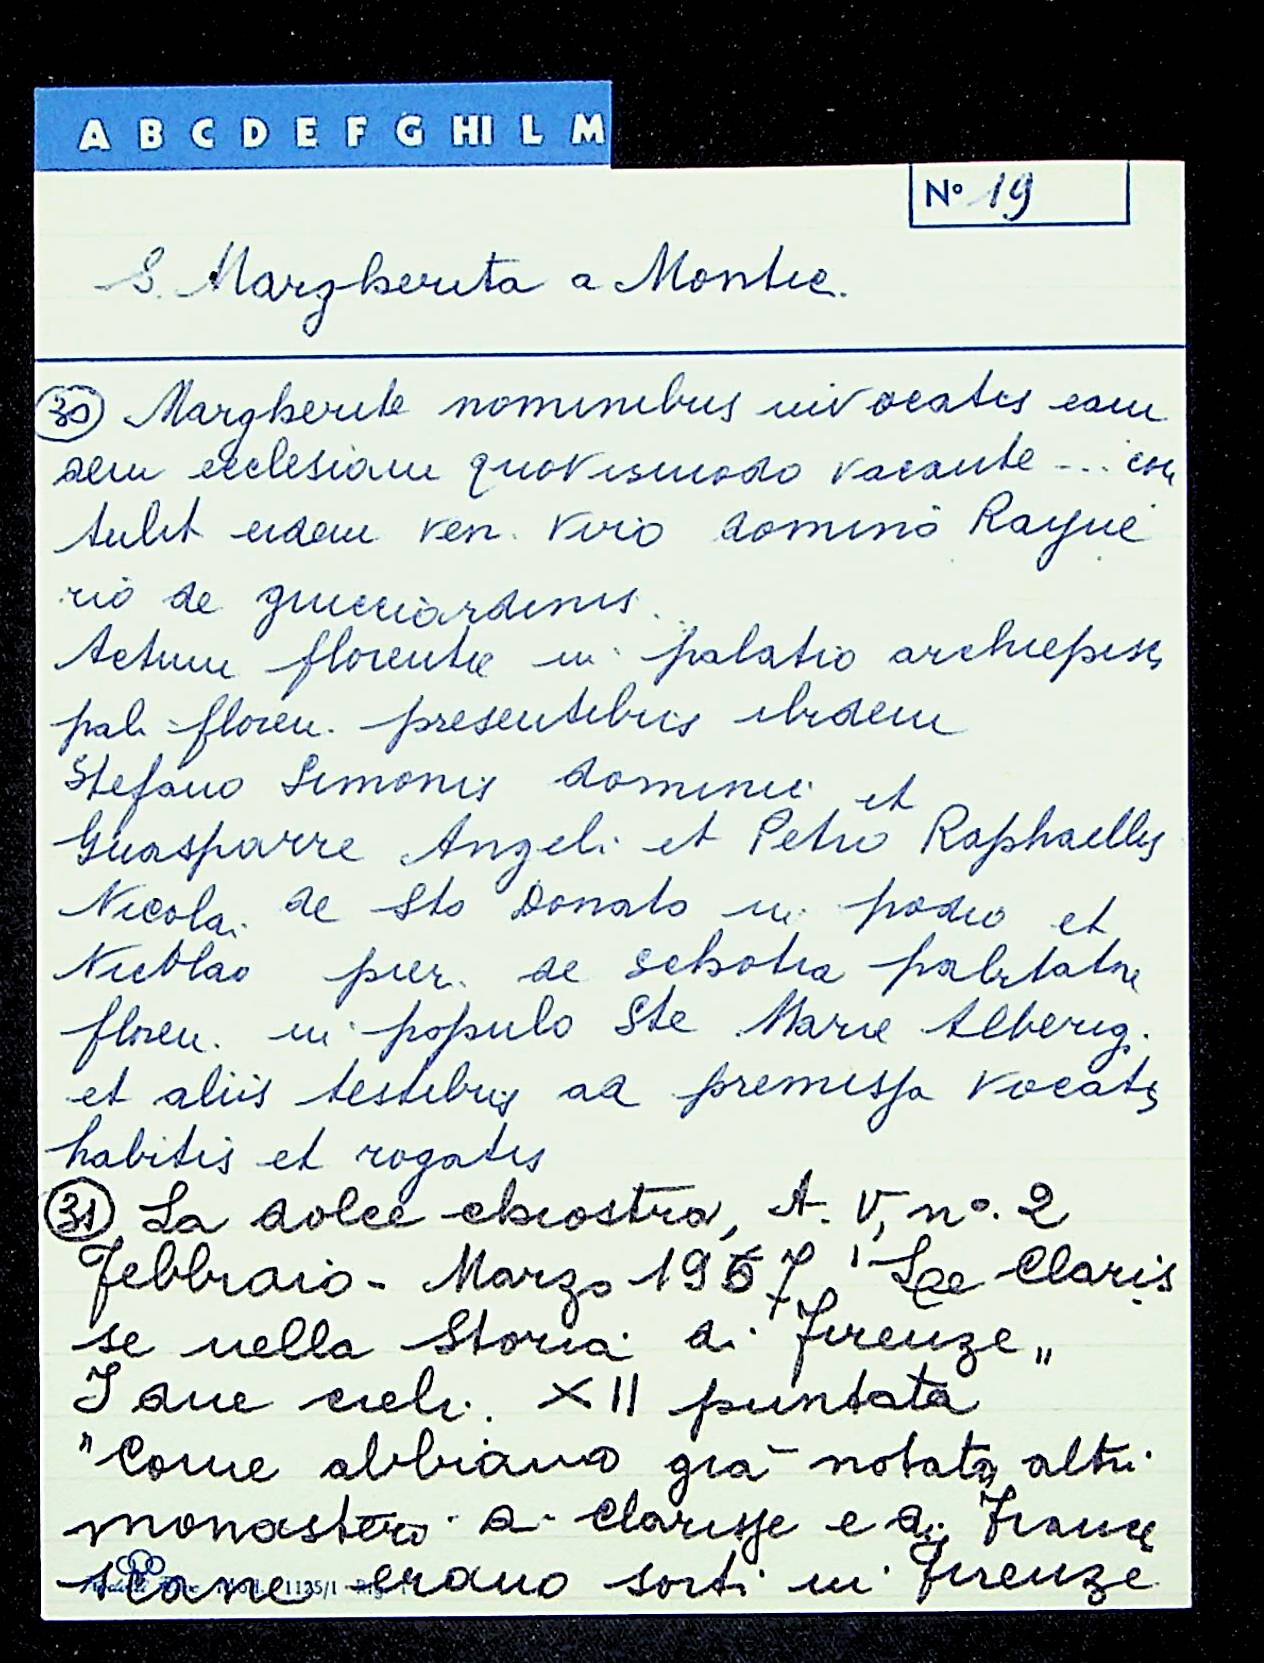 A B C D E F G HI L M
N° 19
S. Margherita a Montic.
30 Margherite nominibus invocatis eam
dem ecclesiam quovismodo vacante ... con
tulit eidem ven. viro domino Rayne
rio de guicciardinis.
Actum florentie in palatio archiepisco
pali floren. presentibus ibidem
Stefano Simonis dominici et
Guasparre Angeli et Petro Raphaellis
Nicolai de Sto Donato in podio et
Nicolao pier. de schotia habitatore
floren. in populo Ste Marie Alberig.
et aliis testibus ad premissa vocatis
habitis et rogatis
31 La dolce chiostra, A. V, n°. 2
Febbraio - Marzo 1967, "Le Claris
se nella Storia di Firenze"
I due cieli. XII puntata
"Come abbiamo già notato, altri
monasteri di Clarisse e di France
scane erano sorti in Firenze